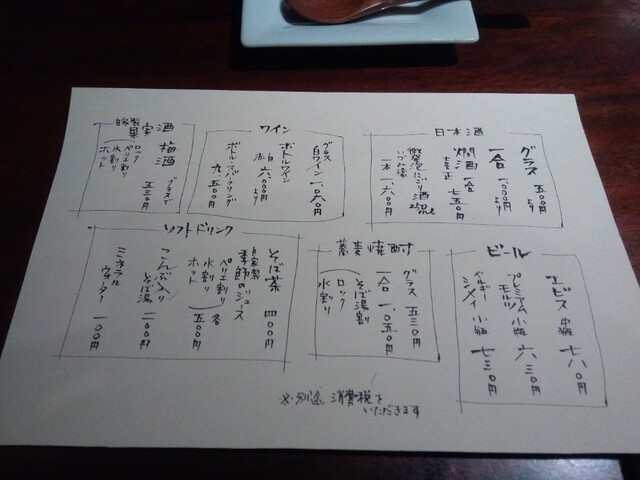 日本酒
グラス 五〇〇円より
一合 一、〇〇〇円より
燗酒 一合 七五〇円
微発泡にごり酒
いづみ橋 一本 一、六〇〇円
ワイン
グラス
白ワイン 一、〇六〇円
ボトルワイン
赤白 六、〇〇〇円より
ボトルスパークリング
九、五〇〇円
自家製
果実酒
梅酒 グラスで 五三〇円
ロック
ペリエ割り
水割り
ホット
ビール
エビス 中瓶 七八〇円
プレミアム
モルツ 小瓶 六三〇円
ベルギー
シメイ 小瓶 七三〇円
蕎麦焼酎
グラス 五三〇円
一合 一、〇五〇円
そば湯割
ロック
水割り
ソフトドリンク
そば茶 四〇〇円
自家製
季節のジュース
ペリエ割り 各
水割り 五〇〇円
ホット
こんぶ入り
そば湯 二〇〇円
ミネラル
ウォーター 一〇〇円
※別途 消費税を
いただきます